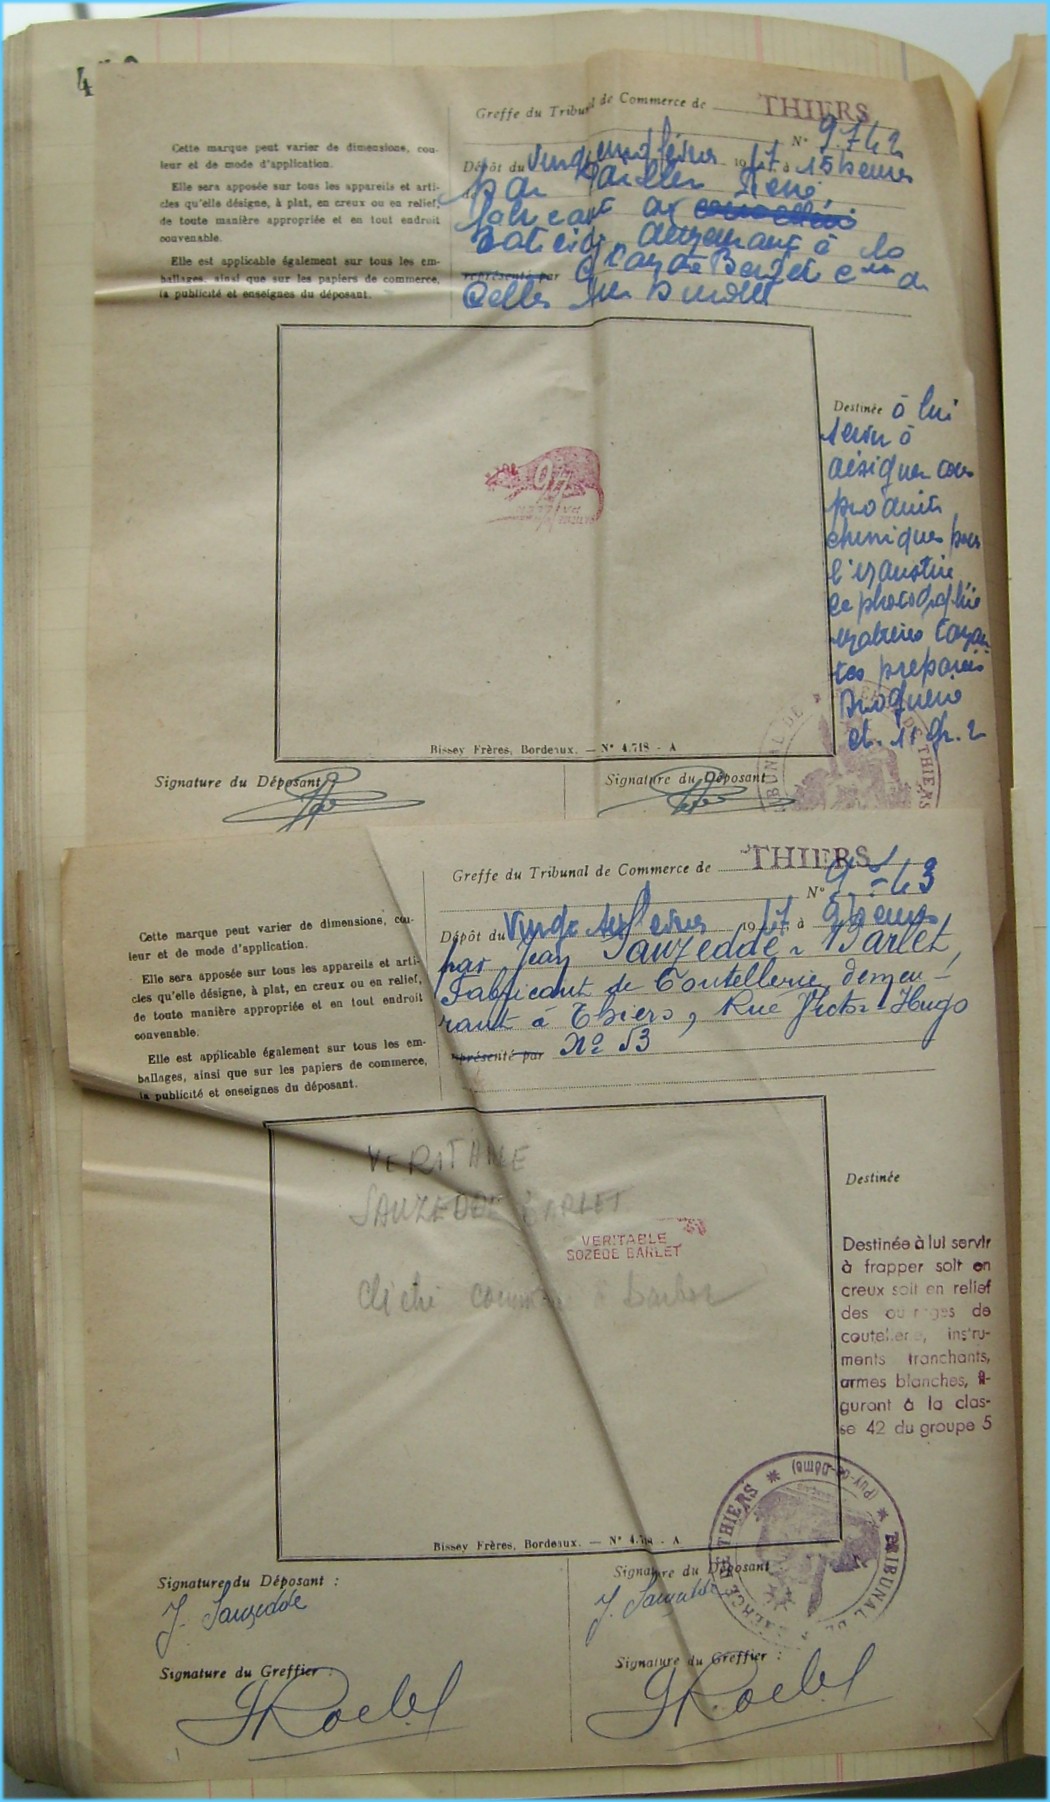 Greffe du Tribunal de Commerce de THIERS
N° 9.742
Cette marque peut varier de dimensions, cou-
leur et de mode d'application.
Elle sera apposée sur tous les appareils et arti-
cles qu'elle désigne, à plat, en creux ou en relief,
de toute manière appropriée et en tout endroit
convenable.
Elle est applicable également sur tous les em-
ballages, ainsi que sur les papiers de commerce,
la publicité et enseignes du déposant.
Dépôt du 1947 à 15 heures
par René
fabricant de
demeurant à la
représenté par
Celles sur Durolle
Destinée à lui
servir à
désigner des
produits
chimiques pour
l'industrie
la photographie
matières tannan
tes préparées
droguerie
cl. 11 gr. 2
Bissey Frères, Bordeaux. — N° 4.718 - A
Signature du Déposant
Signature du Déposant
TRIBUNAL DE THIERS
Greffe du Tribunal de Commerce de THIERS
N° 9.743
Cette marque peut varier de dimensions, cou-
leur et de mode d'application.
Elle sera apposée sur tous les appareils et arti-
cles qu'elle désigne, à plat, en creux ou en relief,
de toute manière appropriée et en tout endroit
convenable.
Elle est applicable également sur tous les em-
ballages, ainsi que sur les papiers de commerce,
la publicité et enseignes du déposant.
Dépôt du 1947 à 9 heures
par Jean Sauzedde-Barlet,
Fabricant de Coutellerie, demeu-
rant à Thiers, Rue Victor-Hugo
représenté par N° 53
VERITABLE
SAUZEDDE BARLET
VERITABLE
SOZEDE BARLET
cliché
Destinée
Destinée à lui servir
à frapper soit en
creux soit en relief
des ouvrages de
coutellerie, instru-
ments tranchants,
armes blanches, fi-
guront à la clas-
se 42 du groupe 5
Bissey Frères, Bordeaux. — N° 4.718 - A
TRIBUNAL DE COMMERCE DE THIERS (Puy-de-Dôme)
Signature du Déposant :
J. Sauzedde
Signature du Déposant :
J. Sauzedde
Signature du Greffier :
Signature du Greffier :